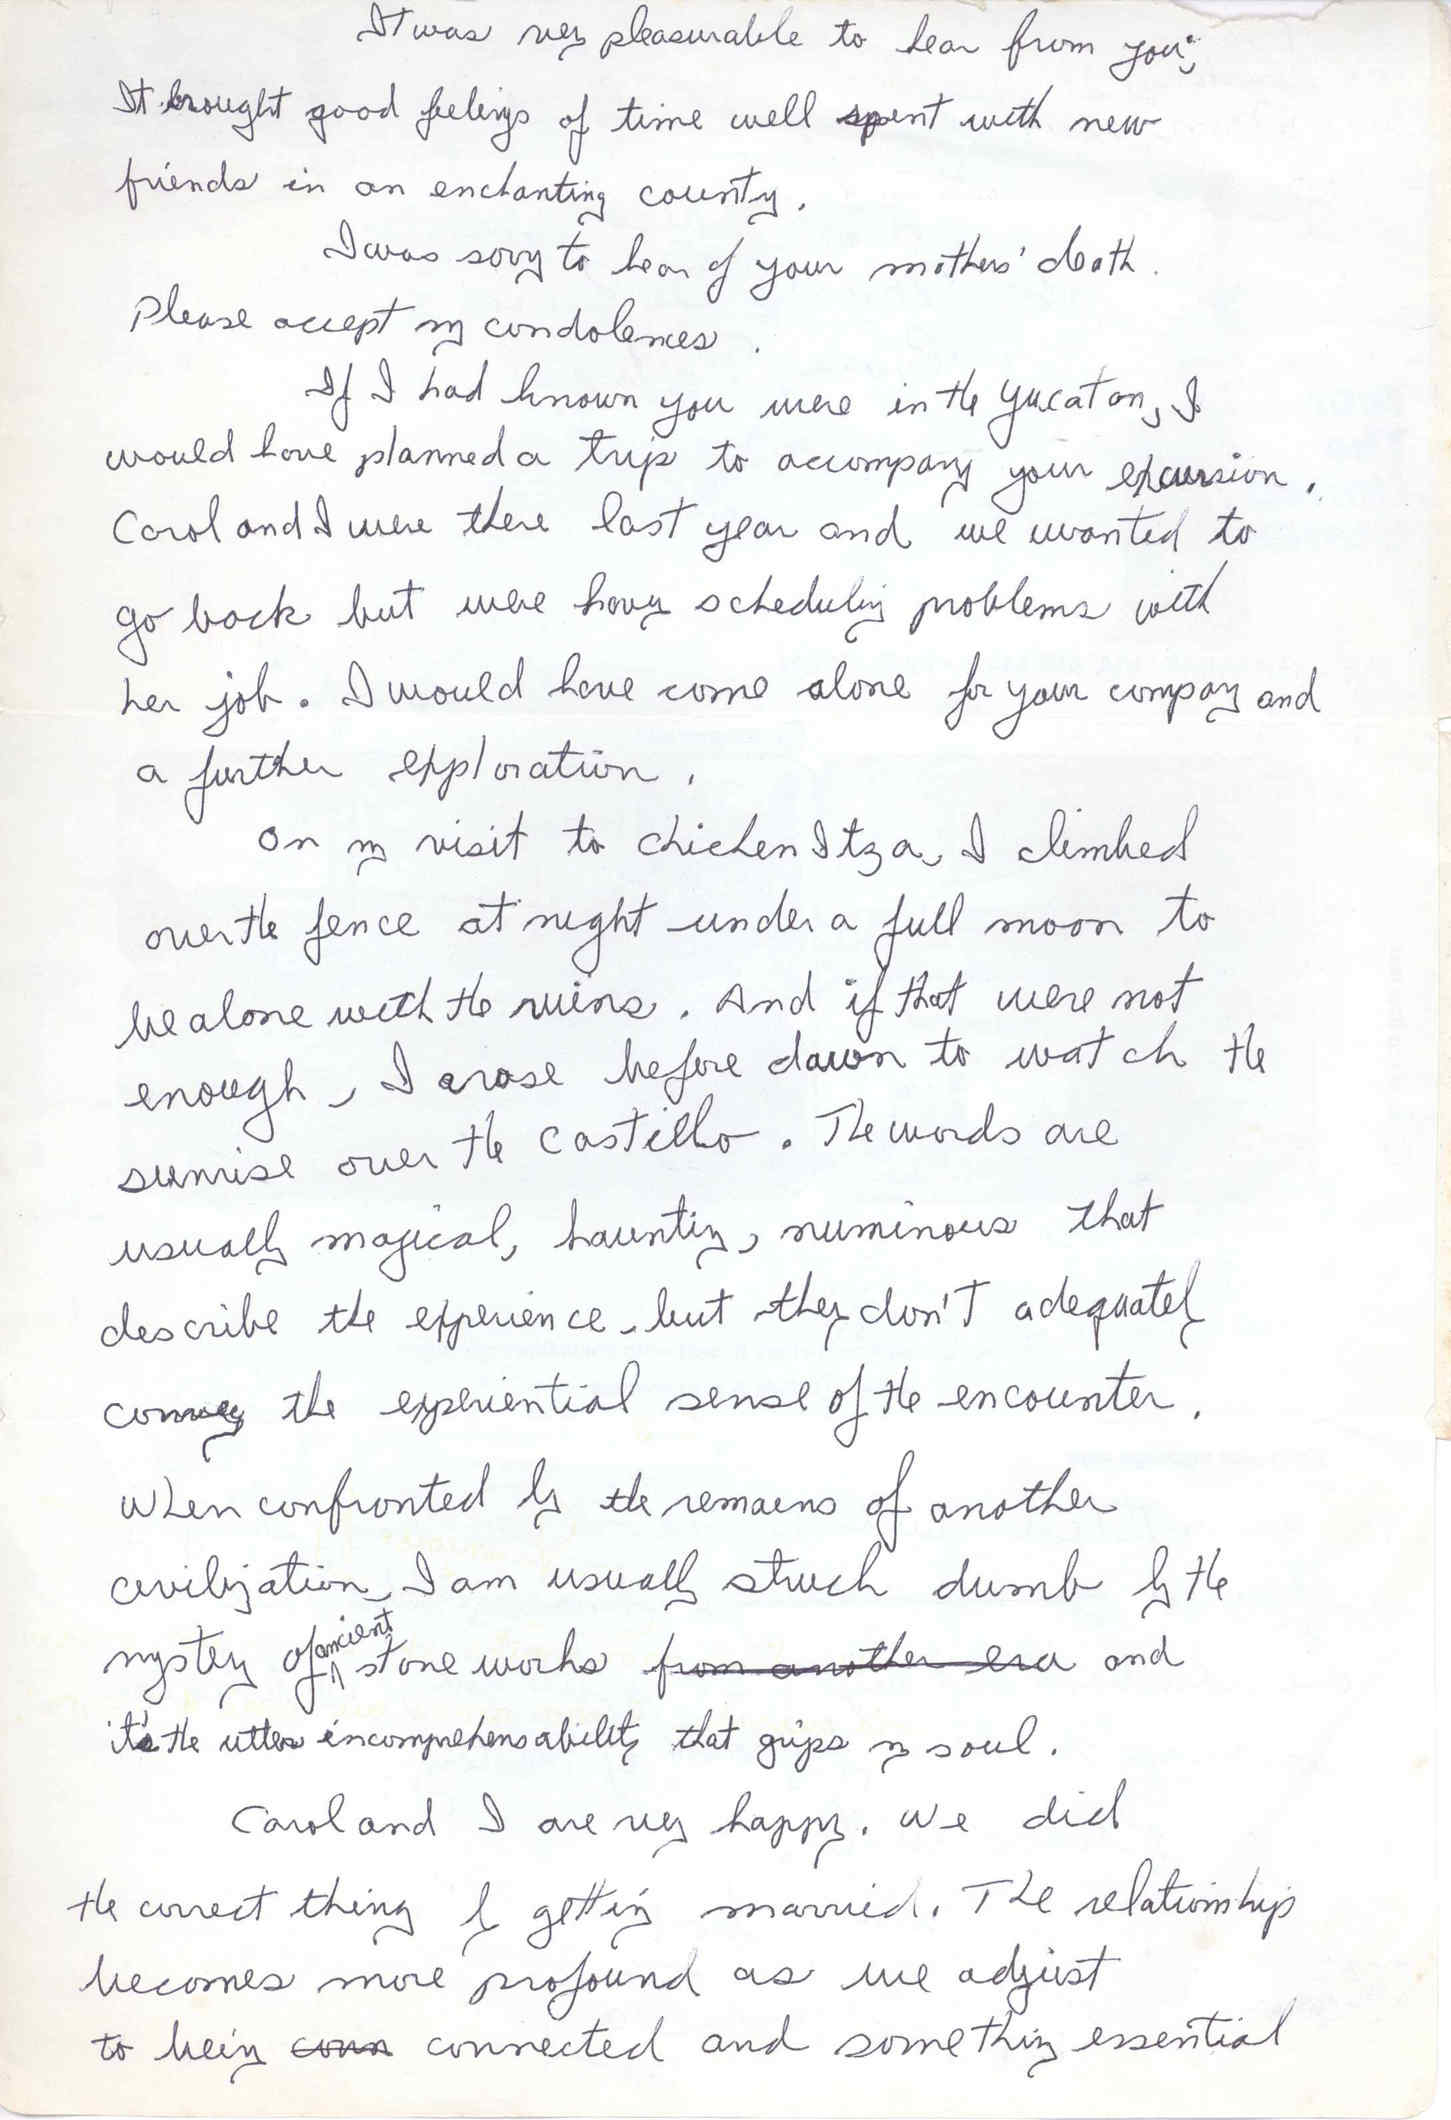 It was very pleasurable to hear from you;
It brought good feelings of time well spent with new
friends in an enchanting county.
I was sorry to hear of your mothers' death.
Please accept my condolences.
If I had known you were in the Yucatan, I
would have planned a trip to accompany your excursion.
Carol and I were there last year and we wanted to
go back but were having scheduling problems with
her job. I would have come alone for your company and
a further exploration.
On my visit to Chichen Itza, I climbed
over the fence at night under a full moon to
be alone with the ruins. And if that were not
enough, I arose before dawn to watch the
sunrise over the Castillo. The words are
usually magical, haunting, numinous that
describe the experience, but they don't adequately
convey the experiential sense of the encounter.
When confronted by the remains of another
civilization, I am usually struck dumb by the
mystery of ancient stone works from another era and
it's the utter incomprehensability that grips my soul.
Carol and I are very happy. We did
the correct thing by getting married. The relationship
becomes more profound as we adjust
to being conn connected and something essential